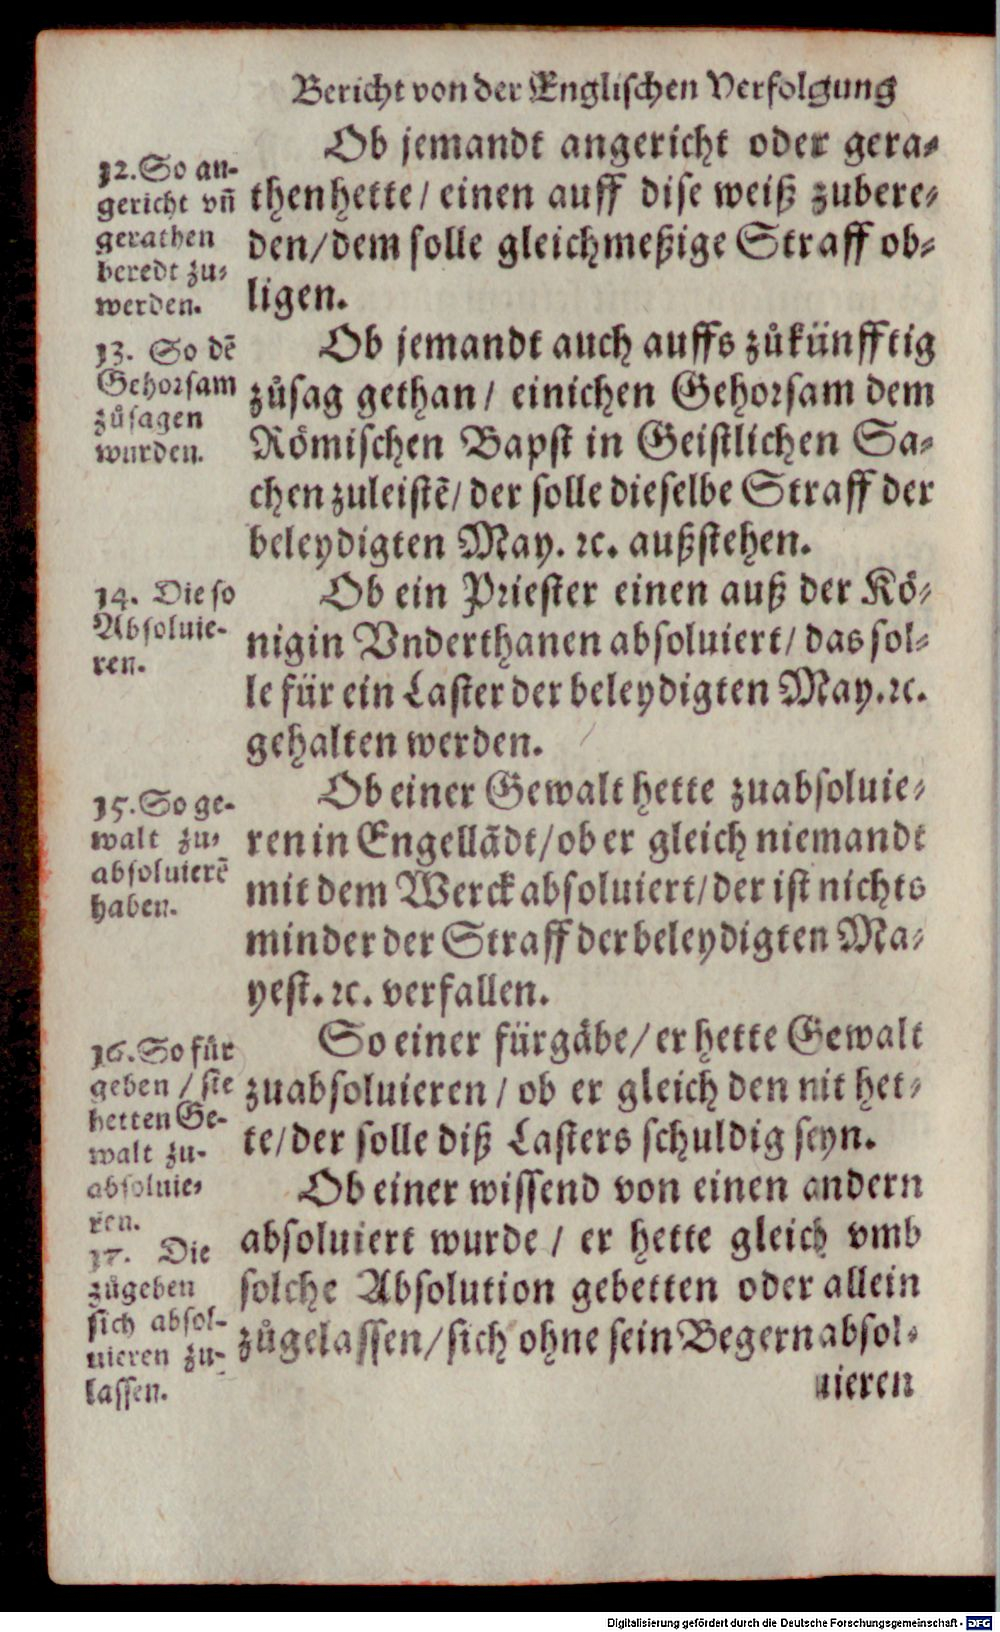 Bericht von der Englischen Verfolgung
12. So an-
gericht vñ
gerathen
beredt zu-
werden.
Ob jemandt angericht oder gera-
then hette / einen auff dise weiß zubere-
den / dem solle gleichmeßige Straff ob-
ligen.
13. So dẽ
Gehorsam
zůsagen
wurden.
Ob jemandt auch auffs zůkünfftig
zůsag gethan / einichen Gehorsam dem
Römischen Bapst in Geistlichen Sa-
chen zuleistẽ / der solle dieselbe Straff der
beleydigten May. ꝛc. außstehen.
14. Die so
Absoluie-
ren.
Ob ein Priester einen auß der Kö-
nigin Vnderthanen absoluiert / das sol-
le für ein Laster der beleydigten May. ꝛc.
gehalten werden.
15. So ge-
walt zu-
absoluierẽ
haben.
Ob einer Gewalt hette zuabsoluie-
ren in Engellãdt / ob er gleich niemandt
mit dem Werck absoluiert / der ist nichts
minder der Straff der beleydigten Ma-
yest. ꝛc. verfallen.
16. So für
geben / sie
hetten Ge-
walt zu-
absoluie-
ren.
So einer fürgäbe / er hette Gewalt
zuabsoluieren / ob er gleich den nit het-
te / der solle diß Lasters schuldig seyn.
17. Die
zůgeben
sich absol-
uieren zu-
lassen.
Ob einer wissend von einen andern
absoluiert wurde / er hette gleich vmb
solche Absolution gebetten oder allein
zůgelassen / sich ohne sein Begern absol-
uieren
Digitalisierung gefördert durch die Deutsche Forschungsgemeinschaft - DFG